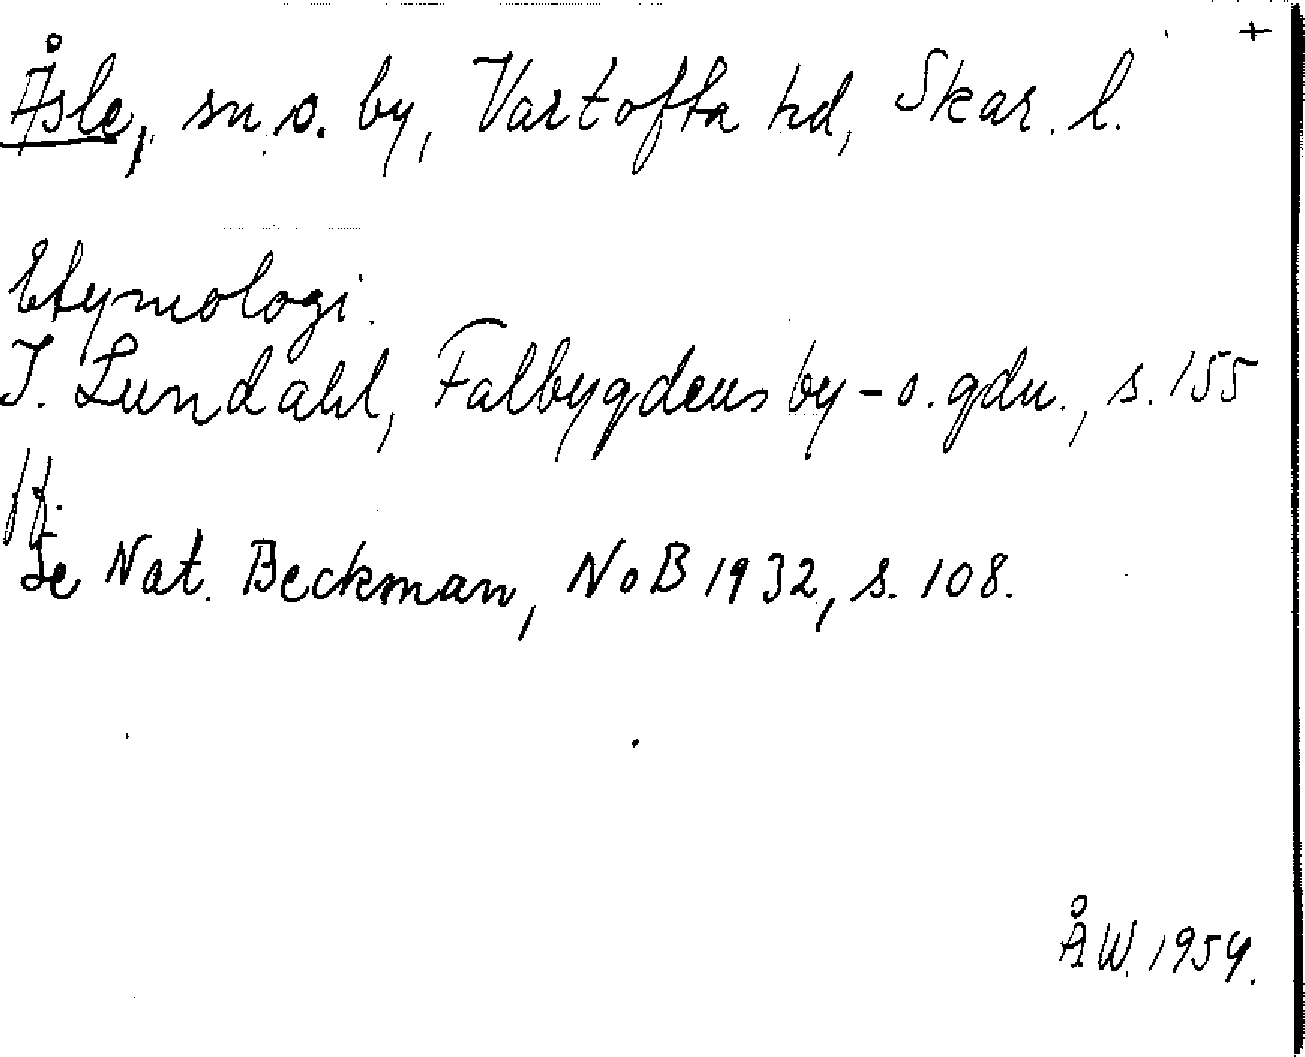 +
Åsle, sn o. by, Vartofta hd, Skar. l.
Etymologi.
I. Lundahl, Falbygdens by- o. gdn., s. 155
ff.
Se Nat. Beckman, NoB 1932, s. 108.
ÅW. 1954.